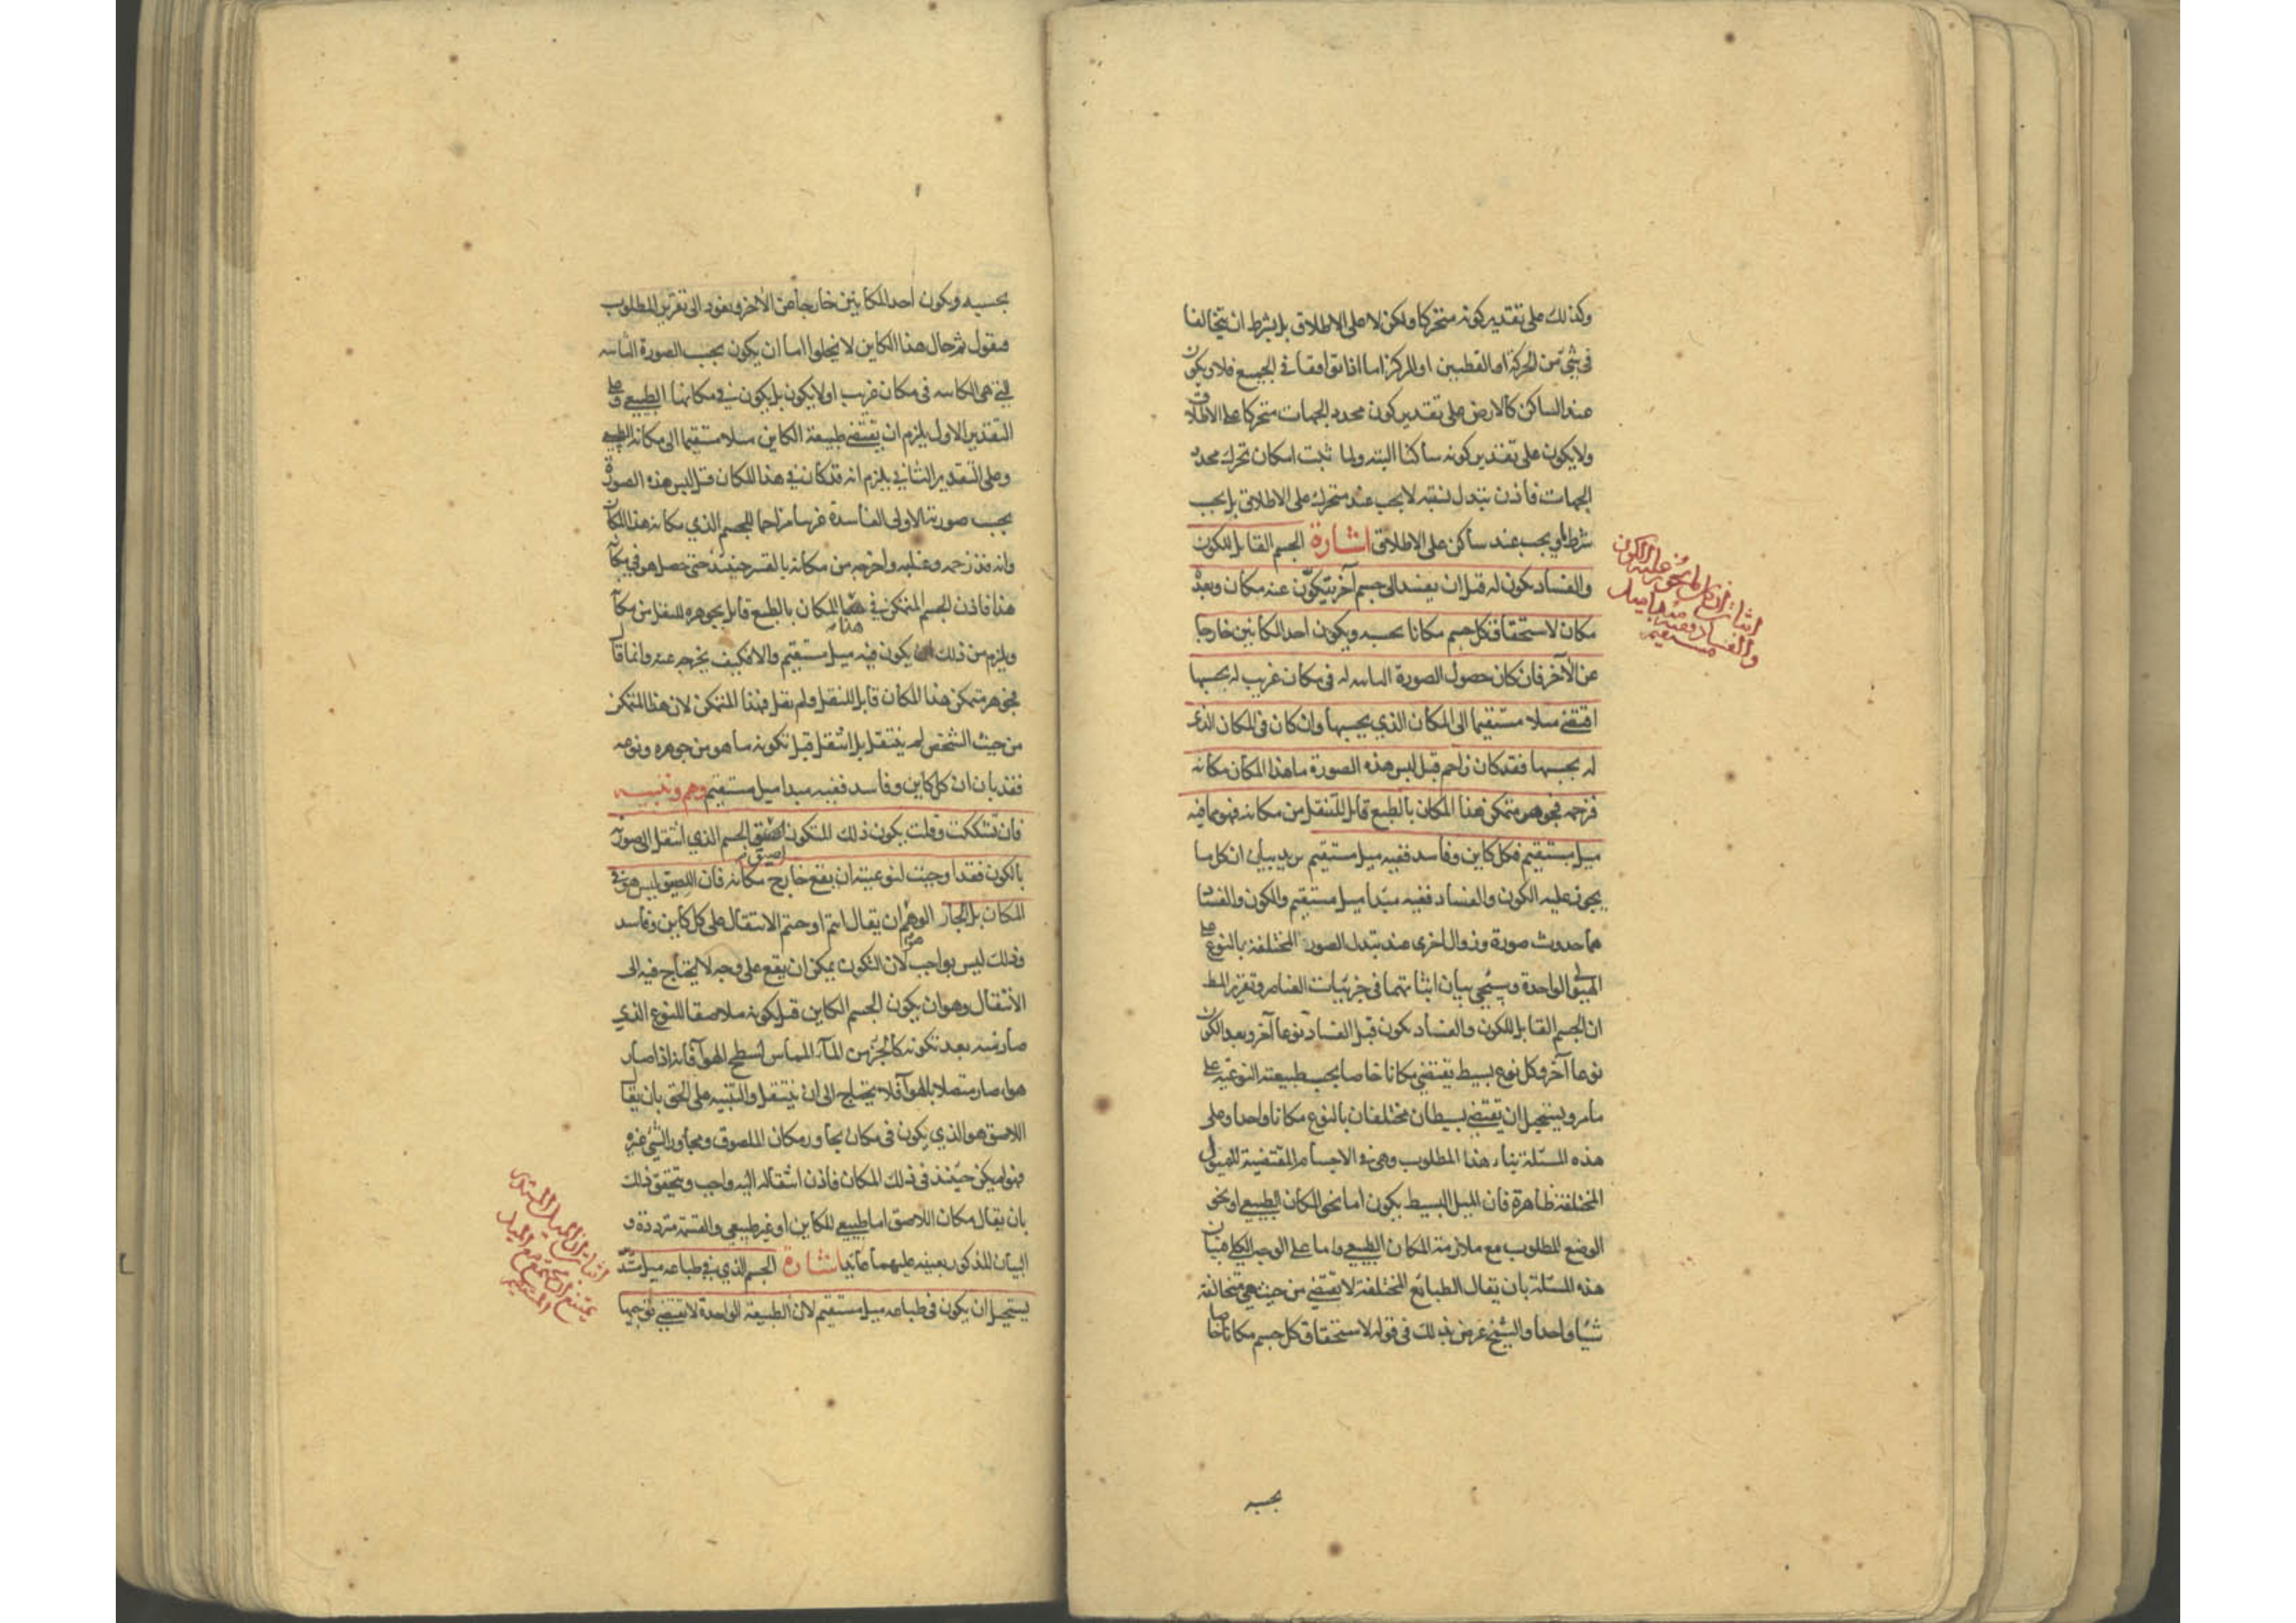 وكذلك على تقدير كونه متحركا ولكن لا على الاطلاق بل بشرط ان يتخالفا
في شيء من الحركة او القطبين او المركز اما اذا توافقا في الجميع فلا ويكون
عند الساكن كالارض على تقدير كون محدد الجهات متحركا على الاطلاق
ولا يكون على تقدير كونه ساكنا البته ولما ثبت امكان تحرك محدد
الجهات فاذن تبدل نسبته لا يجب عند متحرك على الاطلاق بل يجب
بشرط ويجب عند ساكن على الاطلاق اشارة الجسم القابل للكون
والفساد يكون له قبل ان يفسد الى جسم آخر يتكون عنه مكان وبعده
مكان لاستحقاق كل جسم مكانا بحسبه ويكون احد المكانين خارجا
عن الآخر فان كان حصول الصورة الثانيه له في مكان غريب له بحسبها
اقتضى ميلا مستقيما الى المكان الذي بحسبها وان كان في المكان الذي
له بحسبها فقد كان زاحم قبل لبس هذه الصورة ما هذا المكان مكانه
فزحمه فجوهر متمكن هذا المكان بالطبع قابل للتنقل من مكانه فهو مما فيه
ميل مستقيم فكل كاين وفاسد ففيه ميل مستقيم يريد بيان ان كل ما
يجوز عليه الكون والفساد ففيه مبدأ ميل مستقيم والكون والفساد
هما حدوث صورة وزوال اخرى عند تبدل الصور المختلفة بالنوع على
الهيولى الواحدة وسيجيء بيان اثباتهما في جزئيات العناصر وتقرير المط
ان الجسم القابل للكون والفساد يكون قبل الفساد نوعا آخر وبعد الكون
نوعا آخر وكل نوع بسيط يقتضي مكانا خاصا بحسب طبيعته النوعيه على
ما مر ويستحيل ان يقتضي بسيطان مختلفان بالنوع مكانا واحدا وعلى
هذه المسئلة بناء هذا المطلوب وهي في الاجسام المقتضية للميول
المختلفة ظاهرة فان الميل البسيط يكون اما نحو المكان الطبيعي او نحو
الوضع المطلوب مع ملازمة المكان الطبيعي واما على الوجه الكلي فبيان
هذه المسئلة بان يقال الطبائع المختلفة لا تقتضي من حيث هي متخالفة
شيئا واحدا والشيخ عرض بذلك في قوله لاستحقاق كل جسم مكانا خاصا
بحسبه
اثبات ان كل ما يجوز عليه الكون
والفساد ففيه مبدأ ميل
مستقيم
بحسبه ويكون احد المكانين خارجا عن الآخر ونعود الى تقرير المطلوب
فنقول ثم حال هذا الكاين لا يخلوا اما ان يكون بحسب الصورة الثانيه
التي هي الكاينه في مكان غريب او لا يكون بل يكون في مكانها الطبيعي وعلى
التقدير الاول يلزم ان يقتضي طبيعة الكاين ميلا مستقيما الى مكانه الطبيعي
وعلى التقدير الثاني يلزم انه قد كان في هذا المكان قبل لبس هذه الصورة
بحسب صورته الاولى الفاسدة غريبا مزاحما للجسم الذي مكانه هذا المكان
وانه قد زحمه وغلبه واخرجه من مكانه بالقسر حينئذ حتى حصل هو في مكانه
هذا فاذن الجسم المتمكن في هذا المكان بالطبع قابل بجوهره للنقل من مكانه
ويلزم من ذلك ان يكون فيه ميل مستقيم والا فكيف يخرج عنه وانما قال
فجوهر متمكن هذا المكان قابل للنقل ولم يقل فهذا المتمكن لان هذا المتمكن
من حيث الشخص لم ينتقل بل انتقل قبل تكونه ما هو من جوهره ونوعه
فقد بان ان كل كاين وفاسد ففيه مبدا ميل مستقيم وهم وتنبيه
فان تشككت وقلت يكون ذلك المتكون لصيق الجسم الذي انتقل الى صورته
بالكون فقد اوجبت لنوعيته ان يقع خارج مكانه فان اللصيق ليس هو في
المكان بل الجار الوهم هو ان يقال انتم اوجبتم الانتقال على كل كاين وفاسد
وذلك ليس بواجب لان التكون يمكن ان يقع على وجه لا يحتاج فيه الى
الانتقال وهو ان يكون الجسم الكاين قبل كونه ملاصقا للنوع الذي
صار منه بعد تكونه كالجزء من الماء المماس لسطح الهوآء فانه اذا صار
هواء صار متصلا بالهوآء فلا يحتاج الى ان ينتقل والتنبيه على الحق بان يقال
اللاصق هو الذي يكون في مكان يجاور مكان الملصوق ومجاور الشيء غيره
فهو لم يكن حينئذ في ذلك المكان فاذن انتقاله اليه واجب وتحقيق ذلك
بان يقال مكان اللاصق اما طبيعي للكاين او غير طبيعي والقسمة مترددة و
البيان المذكور بعينه عليهما قايم اشارة الجسم الذي في طباعه ميل مستدير
يستحيل ان يكون في طباعه ميل مستقيم لان الطبيعة الواحدة لا تقتضي توجها
اثبات ان الميل المستدير
يمتنع ان يجتمع مع الميل
المستقيم